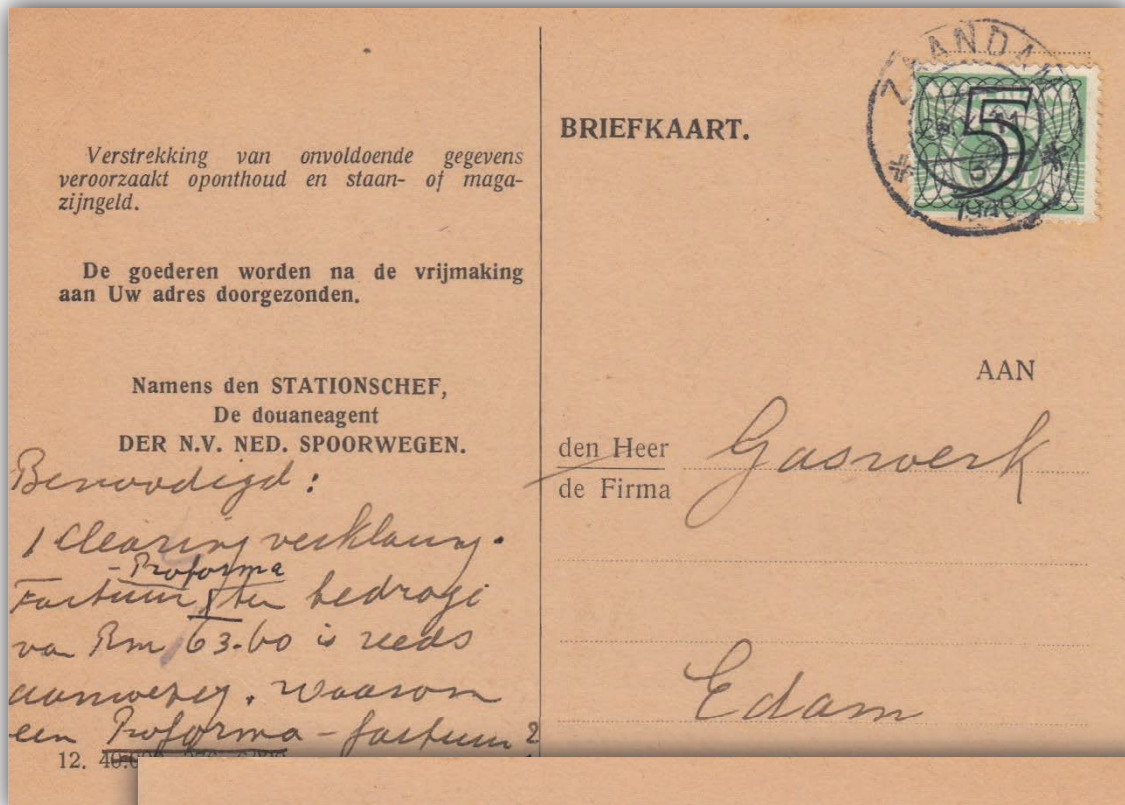 Verstrekking van onvoldoende gegevens
veroorzaakt oponthoud en staan- of maga-
zijngeld.
De goederen worden na de vrijmaking
aan Uw adres doorgezonden.
Namens den STATIONSCHEF,
De douaneagent
DER N.V. NED. SPOORWEGEN.
Benoodigd:
1 clearing verklaring.
- Proforma
Factuur ten bedrage
van Rm 63.60 is reeds
aanwezig. waarom
een Proforma - factuur?
12.
BRIEFKAART.
ZAANDAM
5
1940
AAN
den Heer
de Firma
Gaswerk
Edam